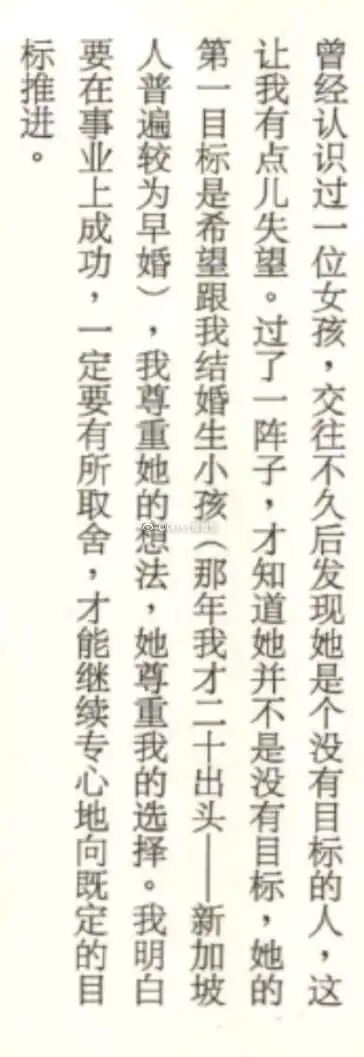 曾经认识过一位女孩，交往不久后发现她是个没有目标的人，这
让我有点儿失望。过了一阵子，才知道她并不是没有目标，她的
第一目标是希望跟我结婚生小孩（那年我才二十出头——新加坡
人普遍较为早婚），我尊重她的想法，她尊重我的选择。我明白
要在事业上成功，一定要有所取舍，才能继续专心地向既定的目
标推进。